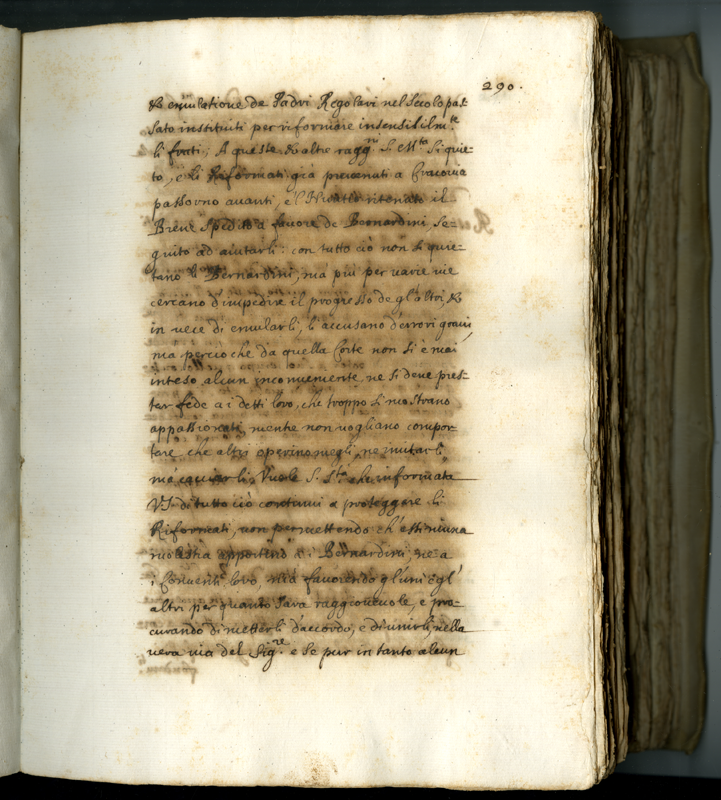 290.
& emulatione de Padri Regolari nel secolo pas-
sato instituiti per riformare insensibilmte
li frati; A queste & altre raggni S. Mta si quie-
to, e li Riformati già prevenuti a Cracovia
passorno avanti, e l'Nuntio ritenuto il
Breve spedito a favore de Bernardini, se-
guito ad aiutarli: con tutto ciò non si quie-
tano li Bernardini, ma più per varie vie
cercano d'impedire il progresso de gl'altri, &
in vece di emularli, li accusano d'errori gravi,
ma perciò che da quella Corte non si è mai
inteso alcun inconveniente, ne si deve pres-
tar fede a i detti loro, che troppo si mostrano
appassionati, mentre non vogliano compor-
tare che altri operino meglio, ne imitarli
ma cacciarli, Vuole S. Sta che informata
V.S. di tutto ciò continui a proteggere li
Riformati, non permettendo ch'essi niuna
molestia apportino a i Bernardini, ne a
i Conventi loro, ma favorendo gl'uni e gl'
altri per quanto sarà raggionevole, e pro-
curando di metterli d'accordo, e d'unirli nella
vera via del Sigre e se pur in tanto alcun